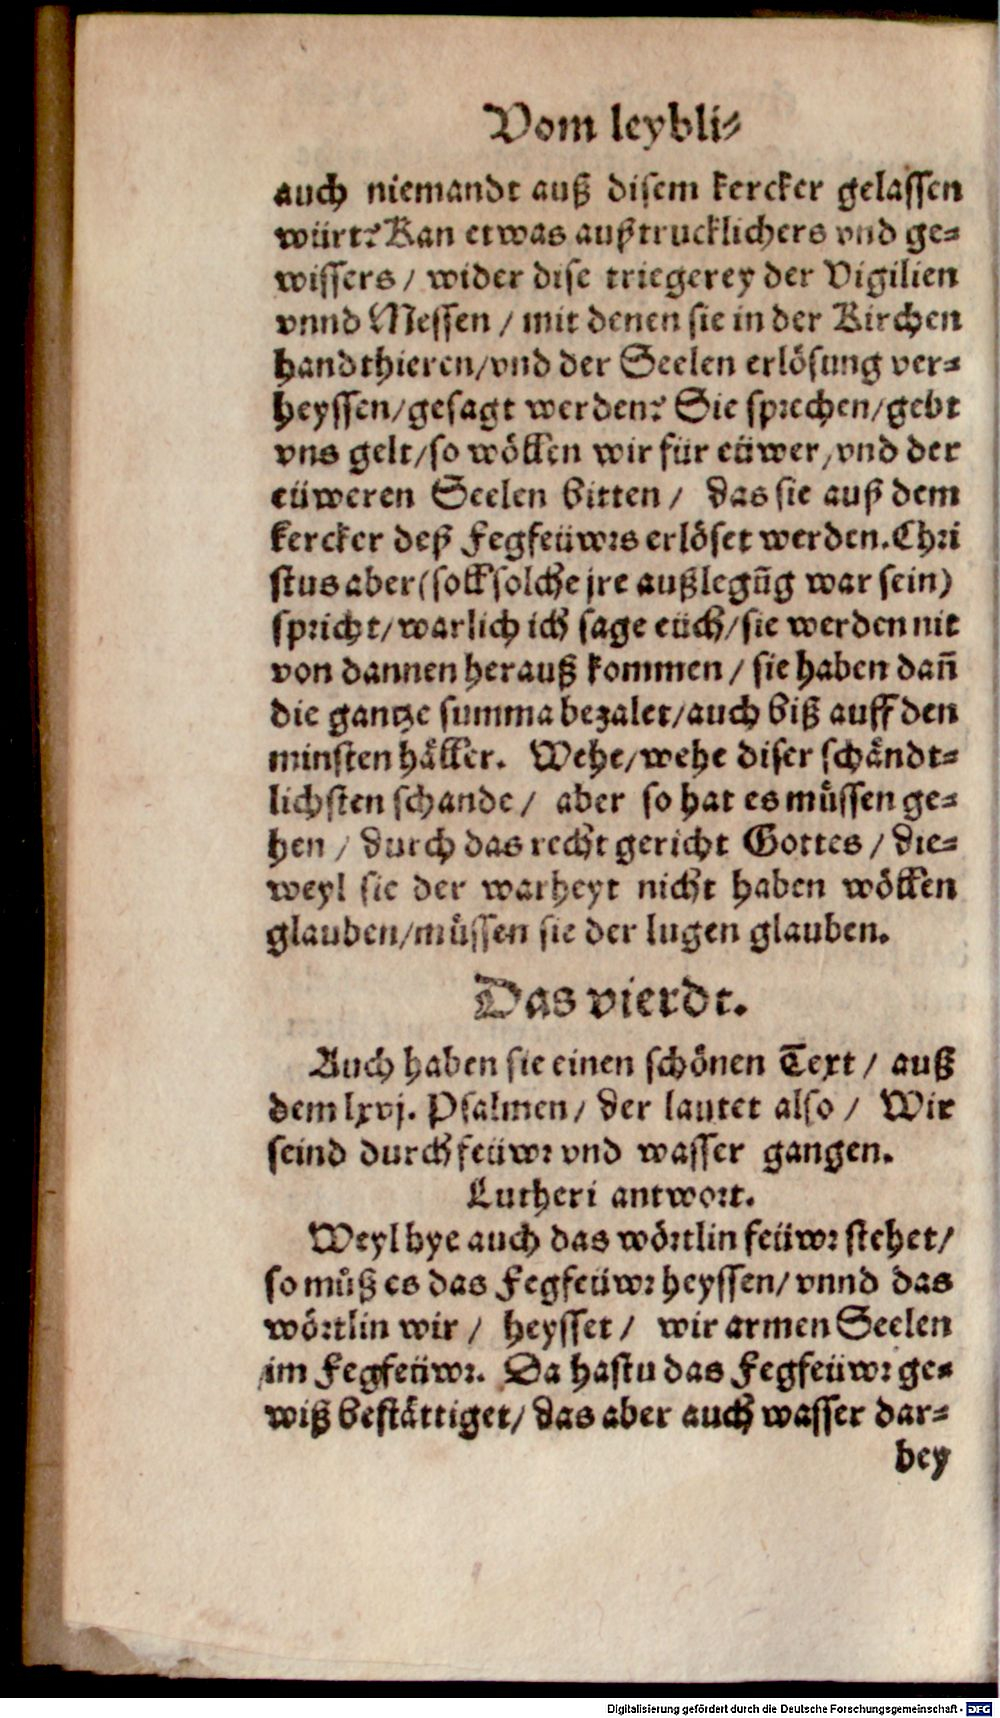 Vom leybli⸗
auch niemandt auß disem kercker gelassen
würt? Kan etwas außtrucklichers vnd ge⸗
wissers / wider dise triegerey der Vigilien
vnnd Messen / mit denen sie in der Kirchen
handthieren/vnd der Seelen erlösung ver⸗
heyssen/gesagt werden? Sie sprechen/gebt
vns gelt/so wöllen wir für eüwer/vnd der
eüweren Seelen bitten / das sie auß dem
kercker deß Fegfeüwrs erlöset werden. Chri
stus aber (soll solche jre außlegūg war sein)
spricht/warlich ich sage eüch/sie werden nit
von dannen herauß kommen / sie haben dañ
die gantze summa bezalet/auch biß auff den
minsten häller. Wehe/wehe diser schändt⸗
lichsten schande / aber so hat es müssen ge⸗
hen / durch das recht gericht Gottes / die⸗
weyl sie der warheyt nicht haben wöllen
glauben/müssen sie der lugen glauben.
Das vierdt.
Auch haben sie einen schönen Text / auß
dem lxvj. Psalmen/ der lautet also / Wir
seind durch feüwr vnd wasser gangen.
Lutheri antwort.
Weyl hye auch das wörtlin feüwr stehet/
so můß es das Fegfeüwr heyssen/ vnnd das
wörtlin wir / heysset / wir armen Seelen
im Fegfeüwr. Da hastu das Fegfeüwr ge⸗
wiß bestättiget/ das aber auch wasser dar⸗
bey
Digitalisierung gefördert durch die Deutsche Forschungsgemeinschaft - DFG